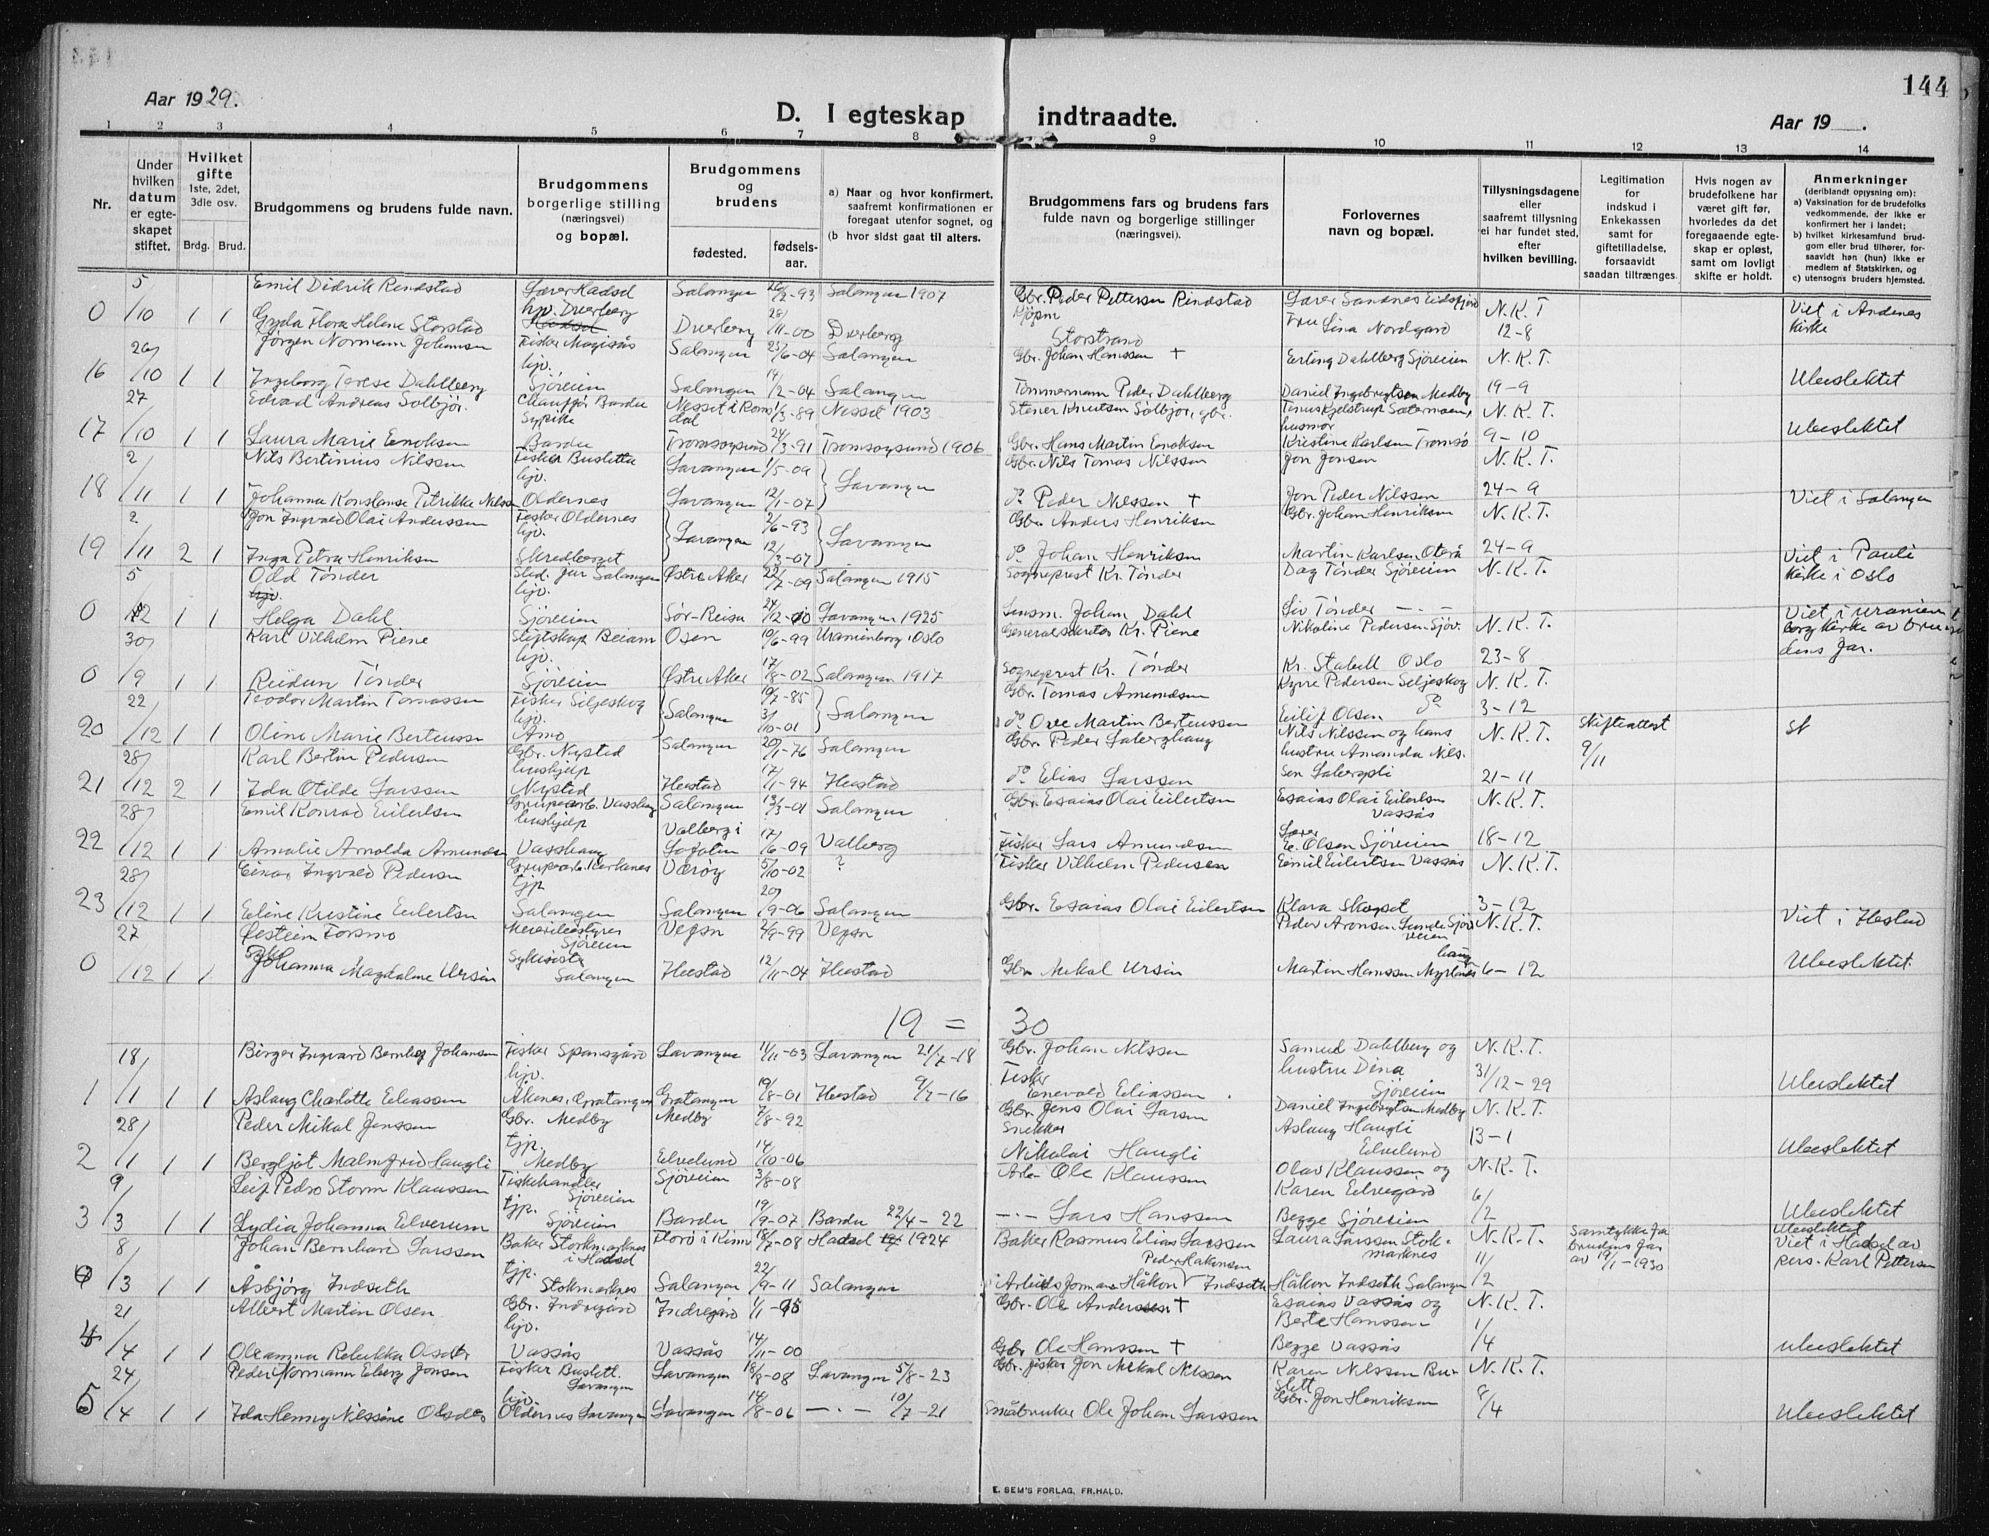 144
Aar 1929.
D. I egteskap indtraadte.
Aar 19 .
1 2 3 4 5 6 7 8 9 10 11 12 13 14
Nr.
Under hvilken datum er egte-skapet stiftet.
Hvilket gifte 1ste, 2det, 3die osv.
Brdg. Brud.
Brudgommens og brudens fulde navn.
Brudgommens borgerlige stilling (næringsvei) og bopæl.
Brudgommens og brudens
fødested. fødsels-aar.
a) Naar og hvor konfirmert, saafremt konfirmationen er foregaat utenfor sognet, og
(b hvor sidst gaat til alters.
Brudgommens fars og brudens fars fulde navn og borgerlige stillinger (næringsvei).
Forlovernes navn og bopæl.
Tillysningsdagene eller saafremt tillysning ei har fundet sted, efter hvilken bevilling.
Legitimation for indskud i Enkekassen samt for giftetilladelse, forsaavidt saadan tiltrænges.
Hvis nogen av brudefolkene har været gift før, hvorledes da det foregaaende egte-skap er opløst, samt om lovligt skifte er holdt.
Anmerkninger
(deriblandt opysning om):
a) Vaksination for de brudefolks vedkommende, der ikke er konfirmert her i landet;
b) hvilket kirkesamfund brud-gom eller brud tilhører, for-saavidt han (hun) ikke er medlem af Statskirken, og
c) utensogns brudens hjemsted.
5 Emil Didrik Rindstad Lærer Hadsel Salangen 26/2-93 Salangen 1907 Gbr. Peder Pettersen Rindstad Lærer Sandnes Eidsfjord N.K.T Viet i Andenes
0 /10 1 1 Gyda Flora Helene Storstad hjv. Dverberg Dverberg 28/11-00 Dverberg Storstrand Fru Lina Nordgård 12-8 Kirke
26/ Jørgen Normann Johansen Fisker Salangen 25/6-04 Salangen Gbr. Johan Hanssen † Erling Dahlberg Sjøveien N.K.T.
16 /10 1 1 Ingeborg Terese Dahlberg hjv. Sjøveien Salangen 14/2-04 Salangen Tømmermann Peder Dahlberg Daniel Ingebrigtsen Medby 19-9 Ubeslektet
27 Edvard Andreas Solbjør. Chauffør Bardu Nesset i Roms dal 1/3-89 Nesset 1903 Stener Knutsen Solbjør, gbr. N.K.T.
17 /10 1 1 Laura Marie Enoksen Sypike Bardu Tromsøysund 24/3-91 Tromsøysund 1906 Gbr. Hans Martin Enoksen husmor Kristine Karlsen Tromsø 9-10 Ubeslektet
2 Nils Bertinius Nilssen Fisker Busletta Lavangen 1/5-09 Lavangen Gbr. Nils Tomas Nilssen Jon Jensen N.K.T.
18 /11 1 1 Johanna Konstanse Petrikke Nilsen hjv. Oldernes Lavangen 12/1-07 do Peder Nilssen † Jon Peder Nilssen 24-9 Viet i Salangen
2 Jon Ingvald Olai Anderssen Fisker Oldernes Lavangen 2/6-93 Lavangen Gbr. Anders Henriksen Gbr. Johan Henriksen N.K.T.
19 /11 2 1 Inga Petra Henriksen hjv. Skredberget 12/3-07 do Johan Henriksen Martin Karlsen Oterå 24-9 Viet i Pauli
5 Odd Tønder Stud. jur Salangen Østre Aker 22/7-09 Salangen 1915 Sogneprest Kr. Tønder Dag Tønder Sjøveien N.K.T. Kirke i Oslo
0 /12 1 1 Helga Dahl hjv. Sjøveien Sør-Reisa 24/12-10 Lavangen 1925 Lensm. Johan Dahl Liv Tønder —·— Viet i Uranien
30/ Karl Vilhelm Piene Osen 10/6-99 Uranienborg, Oslo Generalsekretær Kr. Piene Nikoline Pedersen Sjøv. N.K.T. borg kirke av bru
0 /9 1 1 Reidun Tønder hjv. Sjøveien Østre Aker 17/8-02 Salangen 1917 Sogneprest Kr. Tønder Kr. Stabell Oslo 23-8 dens far.
22 Teodor Martin Tomassen Fisker Seljeskog Salangen 19/7-85 Salangen Gbr. Tomas Amundsen Kyrre Pedersen Seljeskog N.K.T.
20 /12 1 1 Oline Marie Berteussen hjv. Arno 31/10-01 do Ove Martin Berteussen Eilif Olsen do 3-12 Skifteattest
28/ Karl Bertin Pedersen Gbr. Nysted Salangen 20/1-76 Salangen Gbr. Peder Saberghaug Nils Nilssen og hans N.K.T. 9/11
21 /12 2 1 Ida Otilde Larssen hushjelp Nysted Ibestad 17/1-94 Ibestad do Elias Larssen hustru Amanda Nilssen Sabergsli 21-11
28/ Emil Konrad Eilertsen Grubearb. Vasshaug Salangen 13/3-01 Salangen Gbr. Esaias Olai Eilertsen Esaias Olai Eilertsen Vassås N.K.T.
22 /12 1 1 Amalie Arnolda Amundsen hushjelp Vasshaug Valberg i Lofoten 17/6-09 Valberg Fisker Lars Amundsen Lærer E. Olsen Sjøveien 18-12
28/ Einar Ingvald Pedersen Grubearb. Kirkenes Værøy 5/10-02 ? Fisker Vilhelm Pedersen Emil Eilertsen Vassås N.K.T.
23 /12 1 1 Eline Kristine Eilertsen tjp Salangen Salangen 20/9-06 Salangen Gbr. Esaias Olai Eilertsen Klara Skogset 3-12
27 Øistein Forsmo Meieribestyrer Sjøveien Vegøn 2/9-99 Vegøn Peder Aronsen Lunde Sjøveien N.K.T. Viet i Ibestad
0 /12 1 1 Johanna Magdalene Ursin Salangen Ibestad 12/11-04 Ibestad Gbr Mikal Ursin Martin Hanssen 6-12 Ubeslektet
19 = 30
18/ Birger Ingvard Bernhof Johansen Fisker Spansgård Lavangen 11/11-03 Lavangen 21/7-18 Gbr. Johan Nilssen Samuel Dahlberg og N.K.T.
1 /1 1 1 Aslaug Charlotte Eliassen hjv. Åkenes, Gratangen Gratangen 19/8-01 Ibestad 9/7-16 Fisker Enevald Eliassen hustru Dina Sjøveien 31/12-29 Ubeslektet
28/ Peder Mikal Jenssen Gbr. Medby Medby 7/8-92 Gbr. Jens Olai Larsen Daniel Ingebrigtsen Medby N.K.T.
2 /1 1 1 Bergljot Malmfrid Haugli tjp. Medby Elvelund 14/10-06 Snekker Nikolai Haugli Aslaug Haugli Elvelund 13-1 Ubeslektet
9 Leif Pedro Storm Klaussen Fiskehandler Sjøveien Sjøveien 3/8-08 Arb. Ole Klaussen Olav Klaussen og N.K.T.
3 /3 1 1 Lydia Johanna Elverum tjp. Sjøveien Bardu 19/9-07 Bardu 22/4-22 —·— Lars Hanssen Karen Elvegård Begge Sjøveien 6/2 Ubeslektet
8/ Johan Bernhard Larssen Baker Stokmarknes i Hadsel Florø i Kinn 18/7-08 Hadsel 1924 Baker Rasmus Elias Larssen Laura Larssen Stok-marknes N.K.T. Samtykke fra brudens far av 19/1-1930 Ubeslektet Viet i Hadsel av
0 /3 1 1 Åsbjørg Indseth tjp. Stokmarknes Salangen 22/9-11 Salangen Arbeidsformann Håkon Peder Håkonsen Indseth Håkon Indseth Salangen 11/2 pers. Karl Pettersen
21 Albert Martin Olsen Gbr. Indregård Indregård 1/1-95 Gbr. Ole Anderssen † Esaias Vassås og N.K.T.
4 /4 1 1 Oleanna Rebekka Olsdtr hjv. Vassås Vassås 14/11-00 Gbr Ole Hanssen † Berte Hanssen Begge Vassås 1/4 ubeslektet
24 Peder Normann Elberg Jonsen Fisker Buslett. Lavangen Lavangen 18/8-08 Lavangen 5/8-23 Gbr. fisker Jon Mikal Nilssen Karen Nilssen Bu-slett N.K.T.
5 /4 1 1 Ida Henny Nilssine Olsdtr hjv. Oldernes Lavangen Lavangen 14/8-06 —·— 10/7-21 Småbruker Ole Johan Larssen Gbr. Jon Henriksen 8/4 Ubeslektet
E. SEM'S FORLAG, FR.HALD.